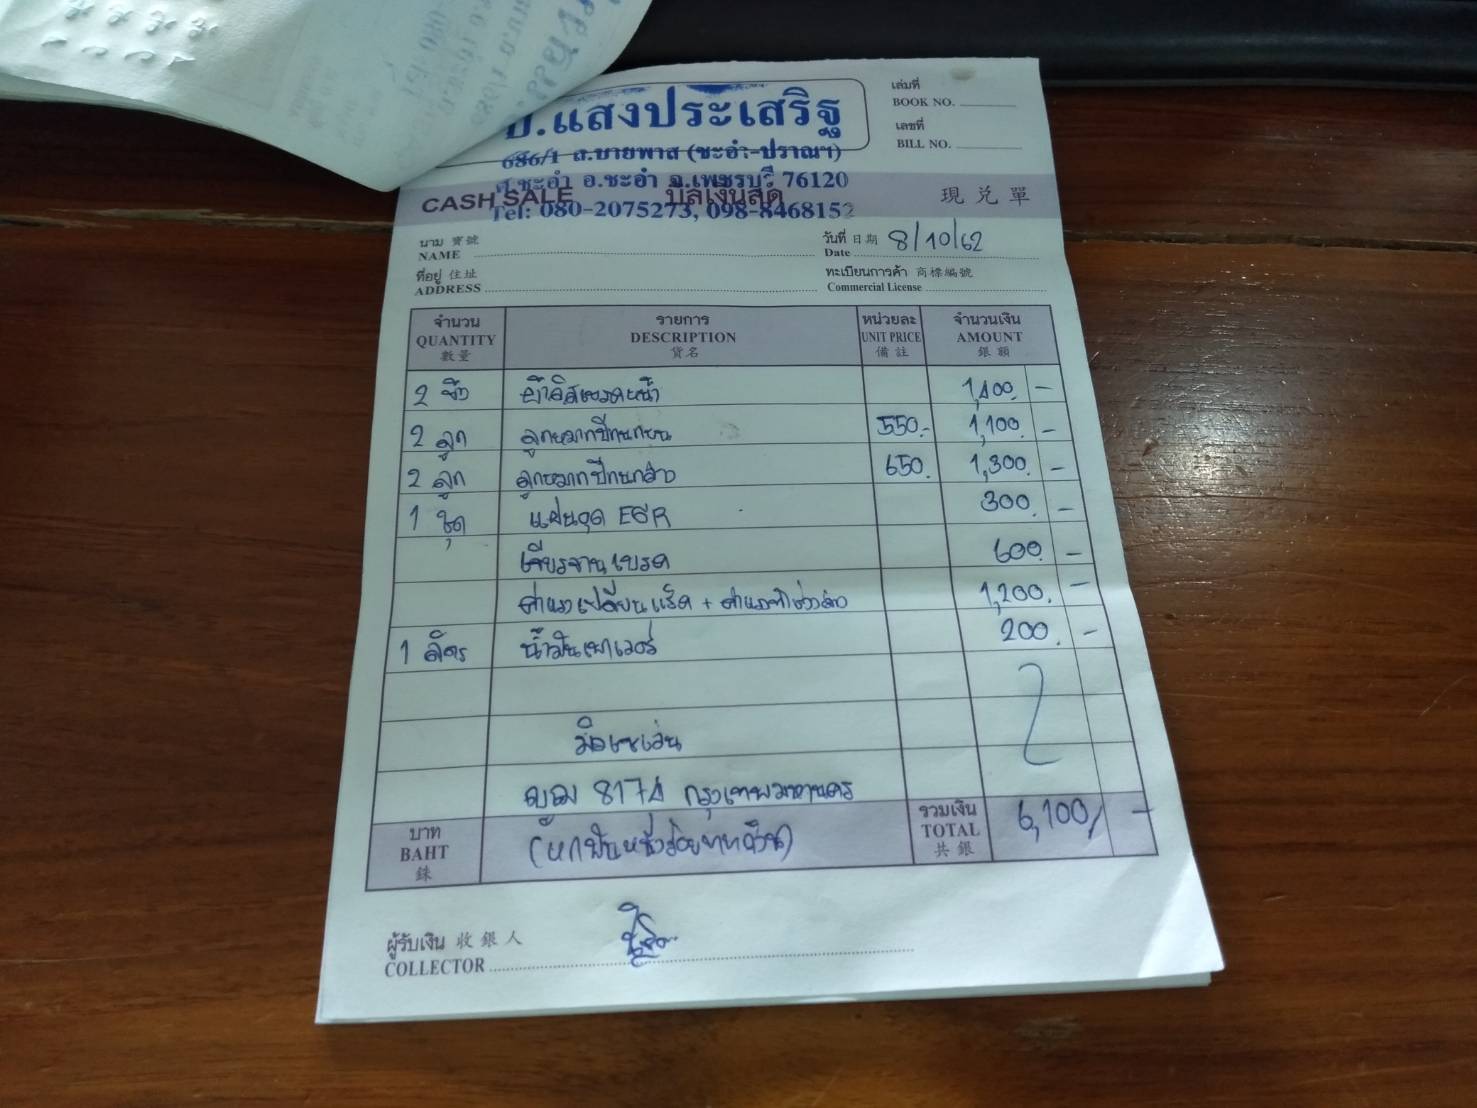 ป.แสงประเสริฐ
686/1 ถ.บายพาส (ชะอำ-ปราณฯ)
ต.ชะอำ อ.ชะอำ จ.เพชรบุรี 76120
Tel: 080-2075273, 098-8468152
เล่มที่
BOOK NO.
เลขที่
BILL NO.
CASH SALE บิลเงินสด 現兌單
นาม 寶號
NAME
วันที่ 日期 8/10/62
Date
ที่อยู่ 住址
ADDRESS
ทะเบียนการค้า 商標編號
Commercial License
จำนวน รายการ หน่วยละ จำนวนเงิน
QUANTITY DESCRIPTION UNIT PRICE AMOUNT
數量 貨名 備註 銀額
2 ผ้าดิสเบรคหน้า 1,400.-
2 ลูก ลูกหมากปีกนกบน 550.- 1,100.-
2 ลูก ลูกหมากปีกนกล่าง 650. 1,300.-
1 ชุด แผ่นอุด EGR 300.-
เจียรจานเบรค 600.-
ค่าแรงเปลี่ยนแร็ค + ค่าแรงทำช่วงล่าง 1,200.-
1 ลิตร น้ำมันเพาเวอร์ 200.-
8174 กรุงเทพมหานคร
บาท
BAHT
銖
(หกพันหนึ่งร้อยบาทถ้วน)
รวมเงิน
TOTAL
共銀
6,100/-
ผู้รับเงิน 收銀人
COLLECTOR